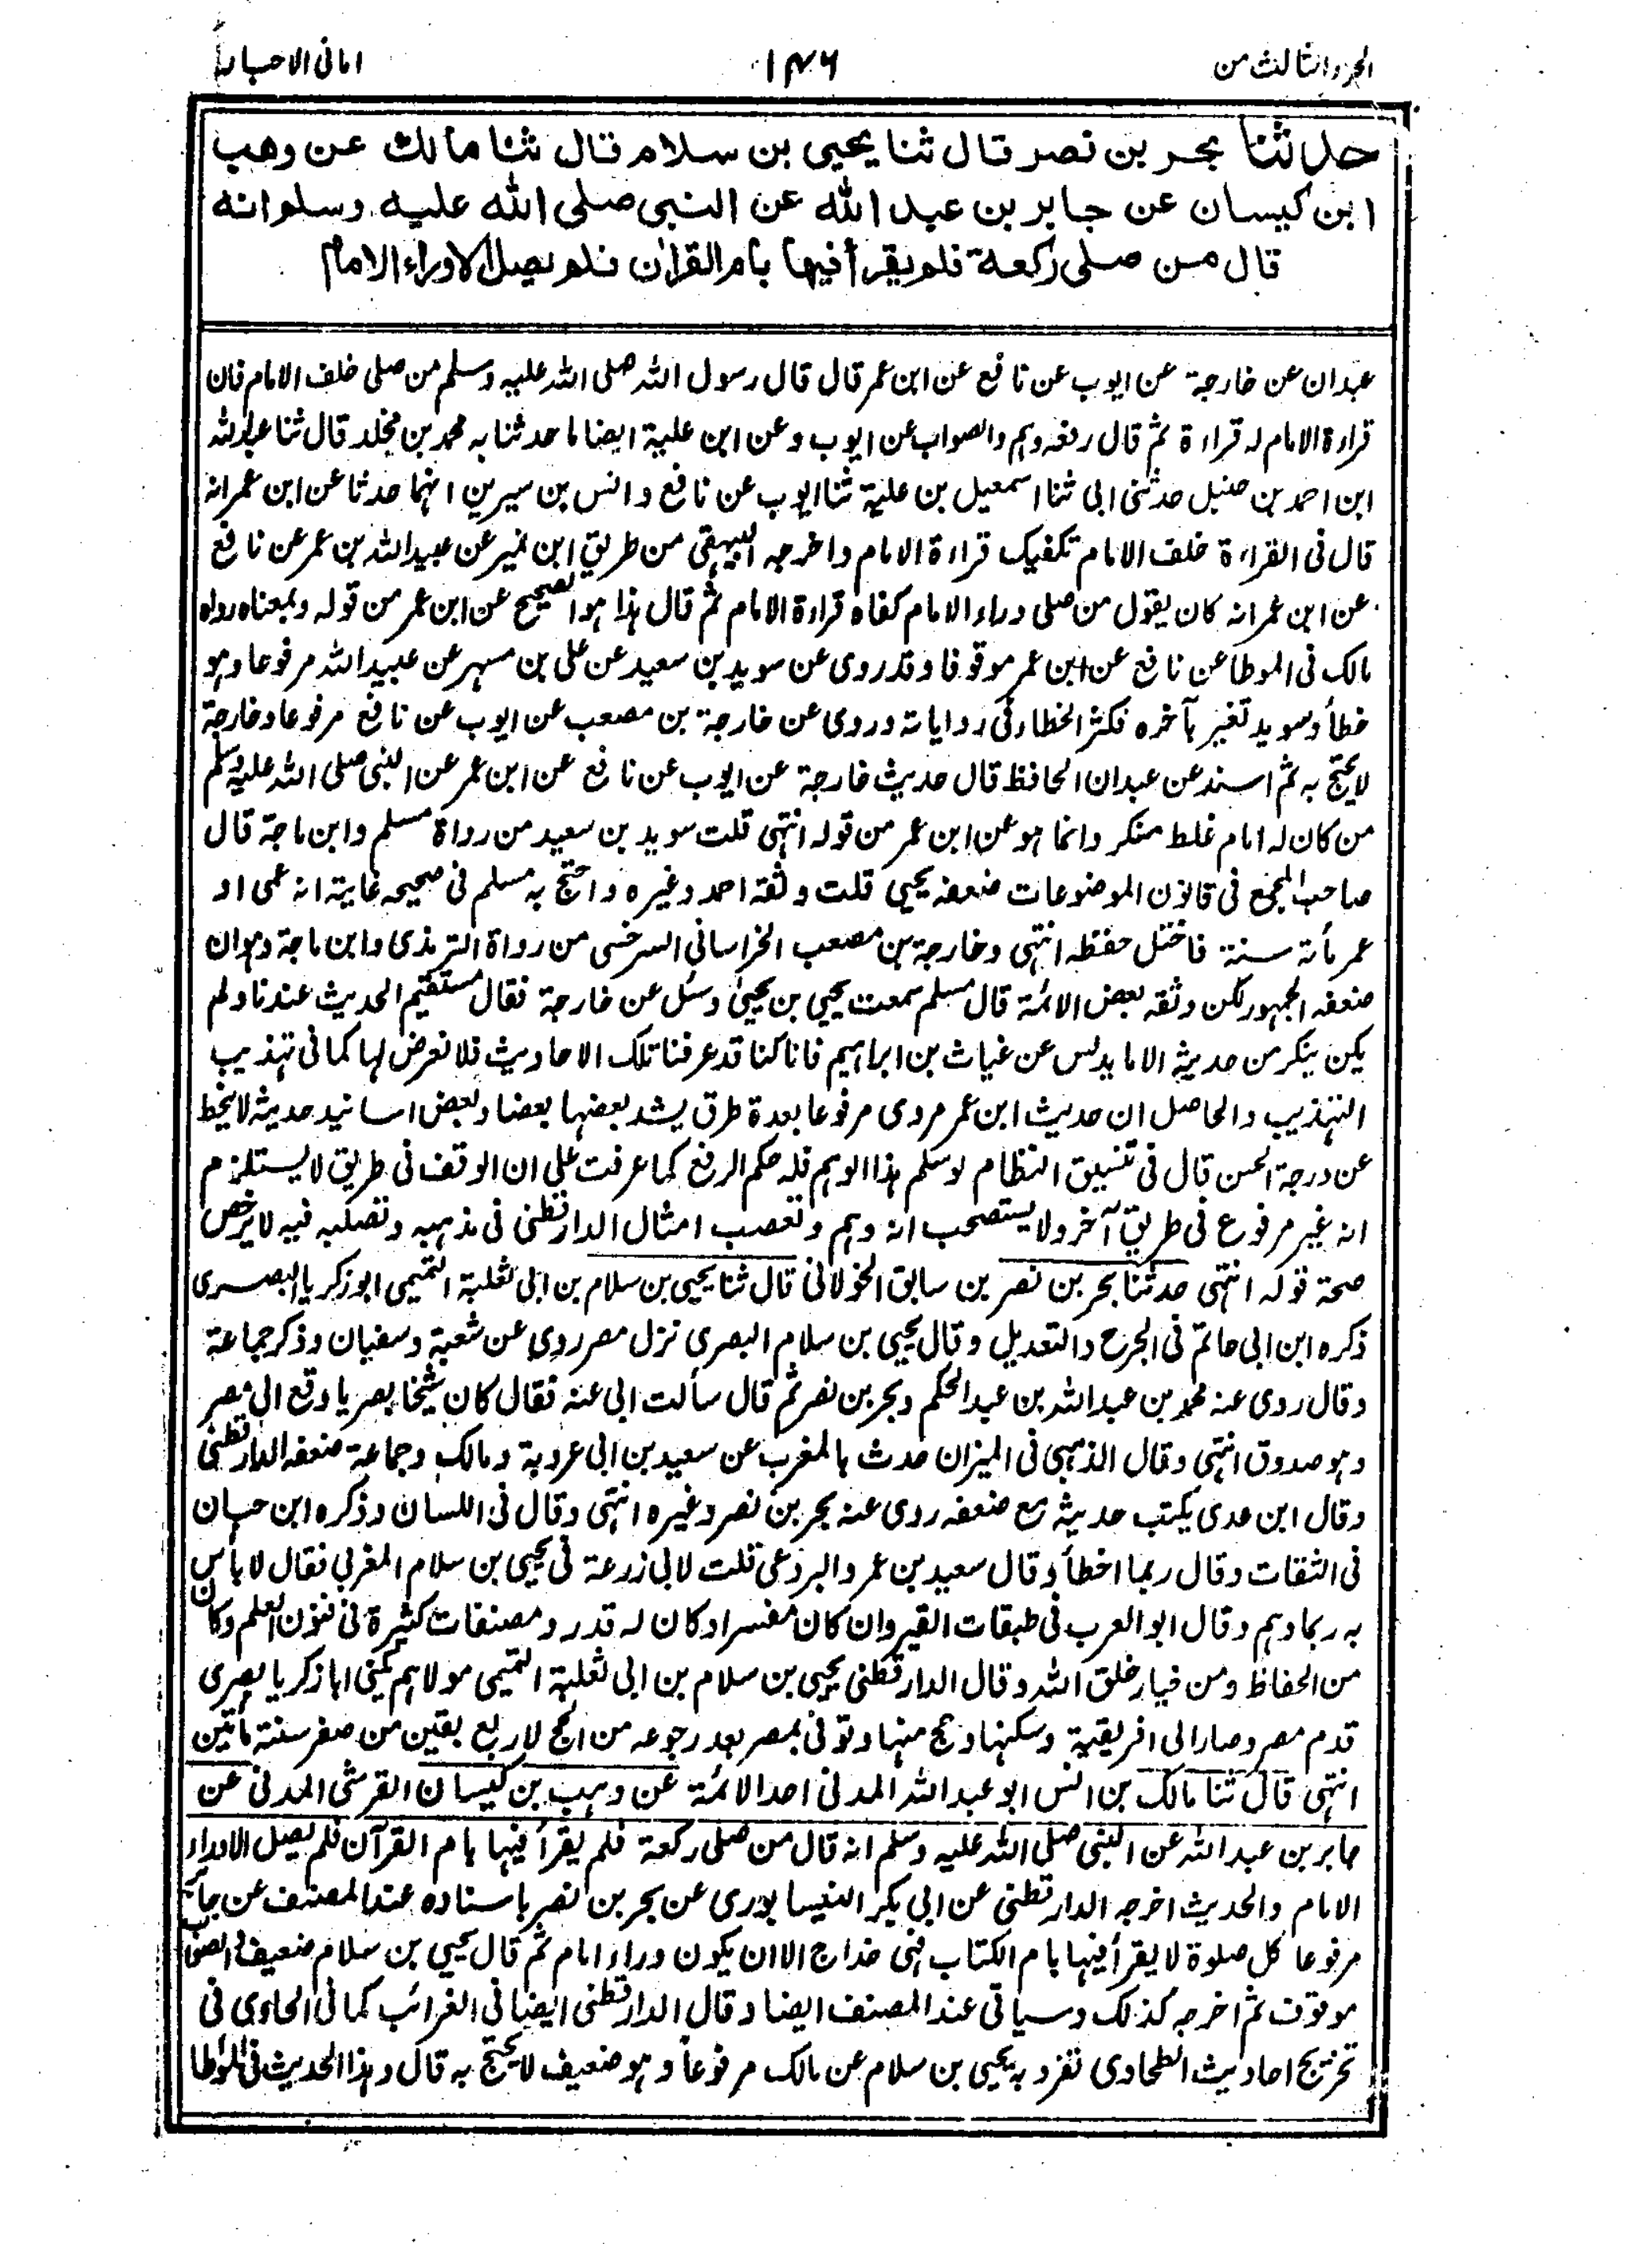 الجزء الثالث من
۱۴۶
امانی الاحبار
حدثنا بحر بن نصر قال ثنا يحيى بن سلام قال ثنا مالك عن وهب
ابن كيسان عن جابر بن عبد الله عن النبى صلى الله عليه وسلم انه
قال من صلى ركعة فلم يقرأ فيها بام القران فلم يصل الا وراء الامام
عبدان عن خارجة عن ايوب عن نافع عن ابن عمر قال قال رسول الله صلى الله عليه وسلم من صلى خلف الامام فان
قراءة الامام له قراءة ثم قال رفعه وهم والصواب عن ايوب وعن ابن علية ايضا ما حدثنا به محمد بن مخلد قال ثنا عبد الله
ابن احمد بن حنبل حدثنى ابى ثنا اسمعيل بن علية ثنا ايوب عن نافع وانس بن سيرين انهما حدثا عن ابن عمر انه
قال فى القراءة خلف الامام تكفيك قراءة الامام واخرجه البيهقى من طريق ابن نمير عن عبيد الله بن عمر عن نافع
عن ابن عمر انه كان يقول من صلى وراء الامام كفاه قراءة الامام ثم قال هذا هو الصحيح عن ابن عمر من قوله وبمعناه رواه
مالك فى الموطا عن نافع عن ابن عمر موقوفا وقد روى عن سويد بن سعيد عن على بن مسهر عن عبيد الله مرفوعا وهو
خطأ وسويد تغير بآخره فكثر الخطاء فى رواياته وروى عن خارجة بن مصعب عن ايوب عن نافع مرفوعا وخارجة
لا يحتج به ثم اسند عن عبدان الحافظ قال حديث خارجة عن ايوب عن نافع عن ابن عمر عن النبى صلى الله عليه وسلم
من كان له امام غلط منكر وانما هو عن ابن عمر من قوله انتهى قلت سويد بن سعيد من رواة مسلم وابن ماجة قال
صاحب المجمع فى قانون الموضوعات ضعفه يحيى قلت وثقه احمد وغيره واحتج به مسلم فى صحيحه غايتة انه عمى او
عمر مأته سنة فاختل حفظه انتهى وخارجة بن مصعب الخراسانى السرخسى من رواة الترمذى وابن ماجة وهو ان
ضعفه الجمهور لكن وثقه بعض الائمة قال مسلم سمعت يحيى بن يحيى وسئل عن خارجة فقال مستقيم الحديث عندنا ولم
يكن ينكر من حديثه الا ما يدلس عن غياث بن ابراهيم فانا كنا قد عرفنا تلك الاحاديث فلا نعرض لها كما فى تهذيب
التهذيب والحاصل ان حديث ابن عمر مروى مرفوعا بعدة طرق يشد بعضها بعضا وبعض اسانيد حديثه لا ينحط
عن درجة الحسن قال فى تنسيق النظام لو سلم هذا الوهم فله حكم الرفع كما عرفت على ان الوقف فى طريق لا يستلزم
انه غير مرفوع فى طريق آخر ولا يستصحب انه وهم وتعصب امثال الدارقطنى فى مذهبه وتصلبه فيه لا يرخص
صحة قوله انتهى حدثنا بحر بن نصر بن سابق الخولانى قال ثنا يحيى بن سلام بن ابى ثعلبة التميمى ابو زكريا البصرى
ذكره ابن ابى حاتم فى الجرح والتعديل وقال يحيى بن سلام البصرى نزل مصر روى عن شعبة وسفيان وذكر جماعة
وقال روى عنه محمد بن عبد الله بن عبد الحكم وبحر بن نصر ثم قال سألت ابى عنه فقال كان شيخا بصريا وقع الى مصر
وهو صدوق انتهى وقال الذهبى فى الميزان حدث بالمغرب عن سعيد بن ابى عروبة ومالك وجماعة ضعفه الدارقطنى
وقال ابن عدى يكتب حديثه مع ضعفه روى عنه بحر بن نصر وغيره انتهى وقال فى اللسان وذكره ابن حبان
فى الثقات وقال ربما اخطأ وقال سعيد بن عمرو البردعى قلت لابى زرعة فى يحيى بن سلام المغربى فقال لا بأس
به ربما وهم وقال ابو العرب فى طبقات القيروان كان مفسرا وكان له قدر ومصنفات كثيرة فى فنون العلم وكان
من الحفاظ ومن خيار خلق الله وقال الدارقطنى يحيى بن سلام بن ابى ثعلبة التميمى مولاهم يكنى ابا زكريا بصرى
قدم مصر وصار الى افريقية وسكنها وحج منها وتوفى بمصر بعد رجوعه من الحج لاربع بقين من صفر سنة مأتين
انتهى قال ثنا مالك بن انس ابو عبد الله المدنى احد الائمة عن وهب بن كيسان القرشى المدنى عن
جابر بن عبد الله عن النبى صلى الله عليه وسلم انه قال من صلى ركعة فلم يقرأ فيها بام القرآن فلم يصل الا وراء
الامام والحديث اخرجه الدارقطنى عن ابى بكر النيسابورى عن بحر بن نصر باسناده عند المصنف عن جابر
مرفوعا كل صلوة لا يقرأ فيها بام الكتاب فهى خداج الا ان يكون وراء امام ثم قال يحيى بن سلام ضعيف والصواب
موقوف ثم اخرجه كذلك وسياتى عند المصنف ايضا وقال الدارقطنى ايضا فى الغرائب كما فى الحاوى فى
تخريج احاديث الطحاوى تفرد به يحيى بن سلام عن مالك مرفوعا وهو ضعيف لا يحتج به قال وهذا الحديث فى الموطا